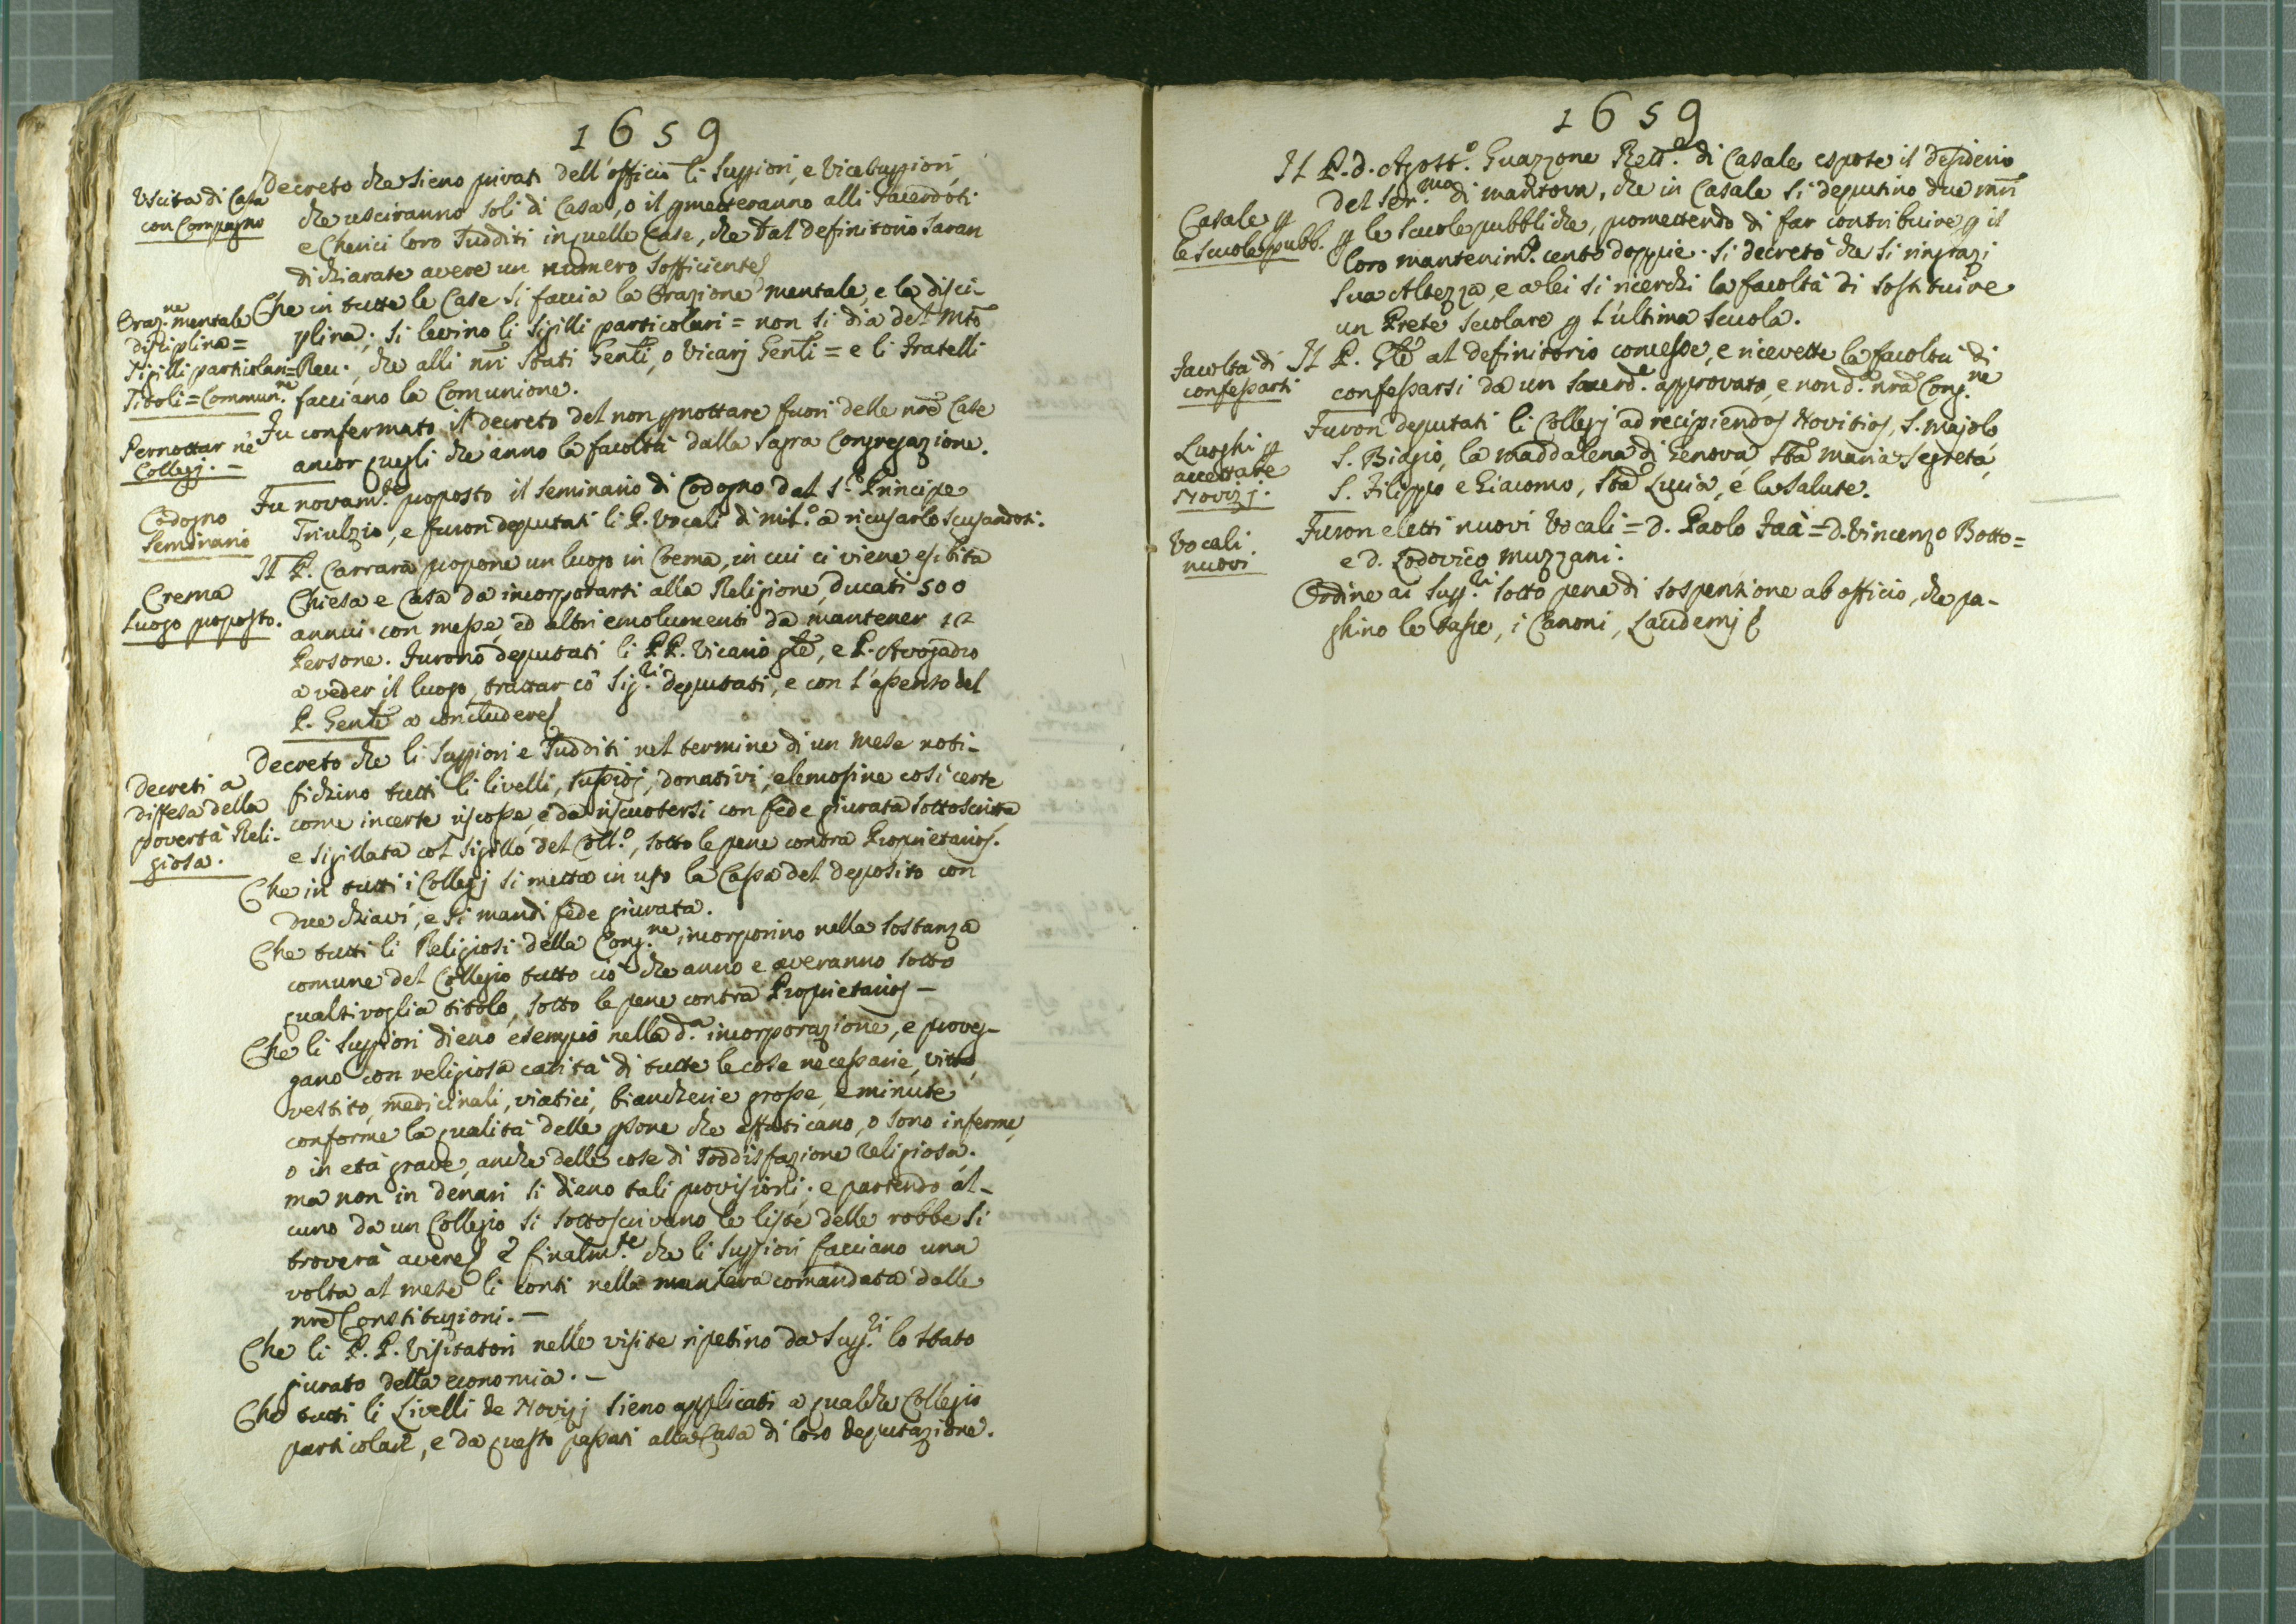 1659
Uscita di Casa
con Compagno
Decreto che sieno privati dell'officio li Suppiori, e Vicesuppiori,
che usciranno soli di Casa, o il pmetteranno alli Sacerdoti
e Cherici loro Sudditi in quelle Case, che dal definitorio saran
dichiarate avere un numero sofficiente
Oraz.ne mentale
disciplina =
Sigilli particolari =
Titoli = Commun.ne
Che in tutte le Case si faccia la Orazione mentale, e la disci-
plina; si levino li sigilli particolari = non si dia del Mto
Rev., che alli nri Stati Genli, o Vicarj Genli = e li Fratelli
facciano la Comunione.
Pernottar ne
Collegj. -
Fu confermato il decreto del non pnottare fuori delle nre Case
ancor quegli che anno la facoltà dalla Sagra Congregazione.
Codogno
Seminario
Fu novam.te proposto il Seminario di Codogno dal S.r Principe
Triulzio, e furon deputati li P. Vocali di Mil.o a ricusarlo scusandosi.
Crema
Luogo proposto.
Il P. Carrara propone un luogo in Crema, in cui ci viene esibita
Chiesa e Casa da incorporarsi alla Religione, ducati 500
annui con messe, ed altri emolumenti da mantener 12
Persone. Furono deputati li PP. Vicario gle, e P. Avogadro
a veder il luogo, trattar cò Sig.ri deputati, e con l'assenso del
P. Genle a concludere
Decreti a
diffesa della
povertà Reli-
giosa.
Decreto che li Suppiori e Sudditi nel termine di un mese noti-
fichino tutti li livelli, sussidj, donativi, elemosine così certe
come incerte riscosse, e da riscuotersi con fede giurata sottoscritta
e sigillata col sigillo del Coll.o, sotto le pene contra Proprietarios.
Che in tutti i Collegj si metta in uso la Cassa del deposito con
due chiavi, e si mandi fede giurata.
Che tutti li Religiosi della Cong.ne incorporino nella sostanza
comune del Collegio tutto ciò che anno e averanno sotto
qualsivoglia titolo, sotto le pene contra Proprietarios -
Che li Suppiori dieno esempio nella d.a incorporazione, e proveg-
gano con religiosa carità di tutte le cose necessarie, vitto,
vestito, medicinali, viatici, biancherie grosse, e minute
conforme la qualità delle psone che affaticano, o sono inferme,
o in età grave, anche delle cose di soddisfazione religiosa.
ma non in denari si dieno tali provisioni; e partendo al-
cuno da un Collegio si sottoscrivano le liste delle robbe si
troverà avere e finalm.te che li Suppiori facciano una
volta al mese li conti nella maniera comandata dalle
nre Constituzioni. -
Che li P.P. Visitatori nelle visite ripetino da Supp.ri lo stato
giurato della economia. -
Che tutti li Livelli de Novizj sieno applicati a qualche Collegio
particolare, e da questo passati alla Casa di loro deputazione.
1659
Casale p
le Scuole pubb.
Il P. d. Agost.o Guazzone Rett.e di Casale espose il desiderio
del Ser.mo di Mantova, che in Casale si deputino due mri
p le scuole pubbliche, promettendo di far contribuire p il
loro mantenim.o cento doppie. Si decretò che si ringrazi
sua Altezza, e a lei si ricerchi la facoltà di sostituire
un Prete secolare p l'ultima scuola.
Facoltà di
confessarsi
Il P. Gle al definitorio concesse, e ricevette la facoltà di
confessarsi da un Sacerd.e approvato, e non d.a nra Cong.ne
Luoghi p
accettare
Novizj.
Furon deputati li Collegj ad recipiendos Novitios, S. Majolo
S. Biagio, la Maddalena di Genova, Sta Maria Segreta,
S. Filippo e Giacomo, Sta Lucia, e la Salute.
Vocali
nuovi.
Furon eletti nuovi Vocali = D. Paolo Faà = D. Vincenzo Botto =
e D. Lodovico Muzzani.
Ordine ai Supp.ri sotto pena di sospensione ab officio, che pa-
ghino le tasse, i Canoni, Laudemj